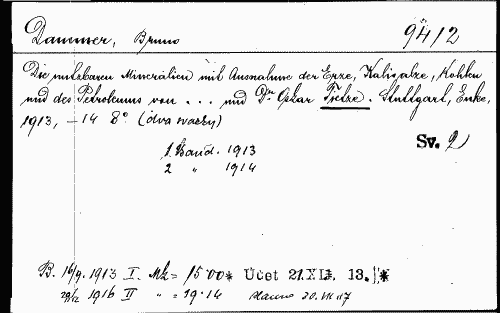 Dammer, Bruno 9412
Die nutzbaren Mineralien mit Ausnahme der Erze, Kalisalze, Kohlen
und des Petroleums von ... und Dr Oskar Tietze. Stuttgart, Enke,
1913, -14 8° (dva svazky)
Sv. 2
1 Band. 1913
2 " 1914
B. 16/9. 1913 I. Mk = 15.00* Účet 21.XII. 13. *
29/12 1916 II " = 19.14 30.VII.17